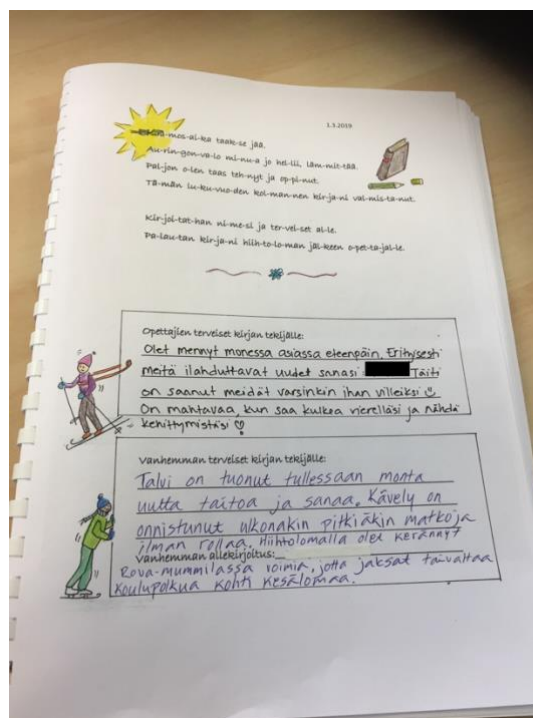 1.3.2019
mos-ai-ka taak-se jää.
Au-rin-gon-va-lo mi-nu-a jo hel-lii, läm-mit-tää.
Pal-jon o-len taas teh-nyt ja op-pi-nut.
Tä-män lu-ku-vuo-den kol-man-nen kir-ja-ni val-mis-ta-nut.
Kir-joi-tat-han ni-me-si ja ter-vei-set al-le.
Pa-lau-tan kir-ja-ni hiih-to-lo-man jäl-keen o-pet-ta-jal-le.
Opettajien terveiset kirjan tekijälle:
Olet mennyt monessa asiassa eteenpäin. Erityisesti
meitä ilahduttavat uudet sanasi Täiti
on saanut meidät varsinkin ihan villeiksi
On mahtavaa, kun saa kulkea vierelläsi ja nähdä
kehittymistäsi
Vanhemman terveiset kirjan tekijälle:
Talvi on tuonut tullessaan monta
uutta taitoa ja sanaa. Kävely on
onnistunut ulkonakin pitkiäkin matkoja
ilman rollaa. Hiihtolomalla olet kerännyt
Vanhemman allekirjoitus:
Rova-mummilassa voimia, jotta jaksat taivaltaa
koulupolkua kohti kesälomaa.